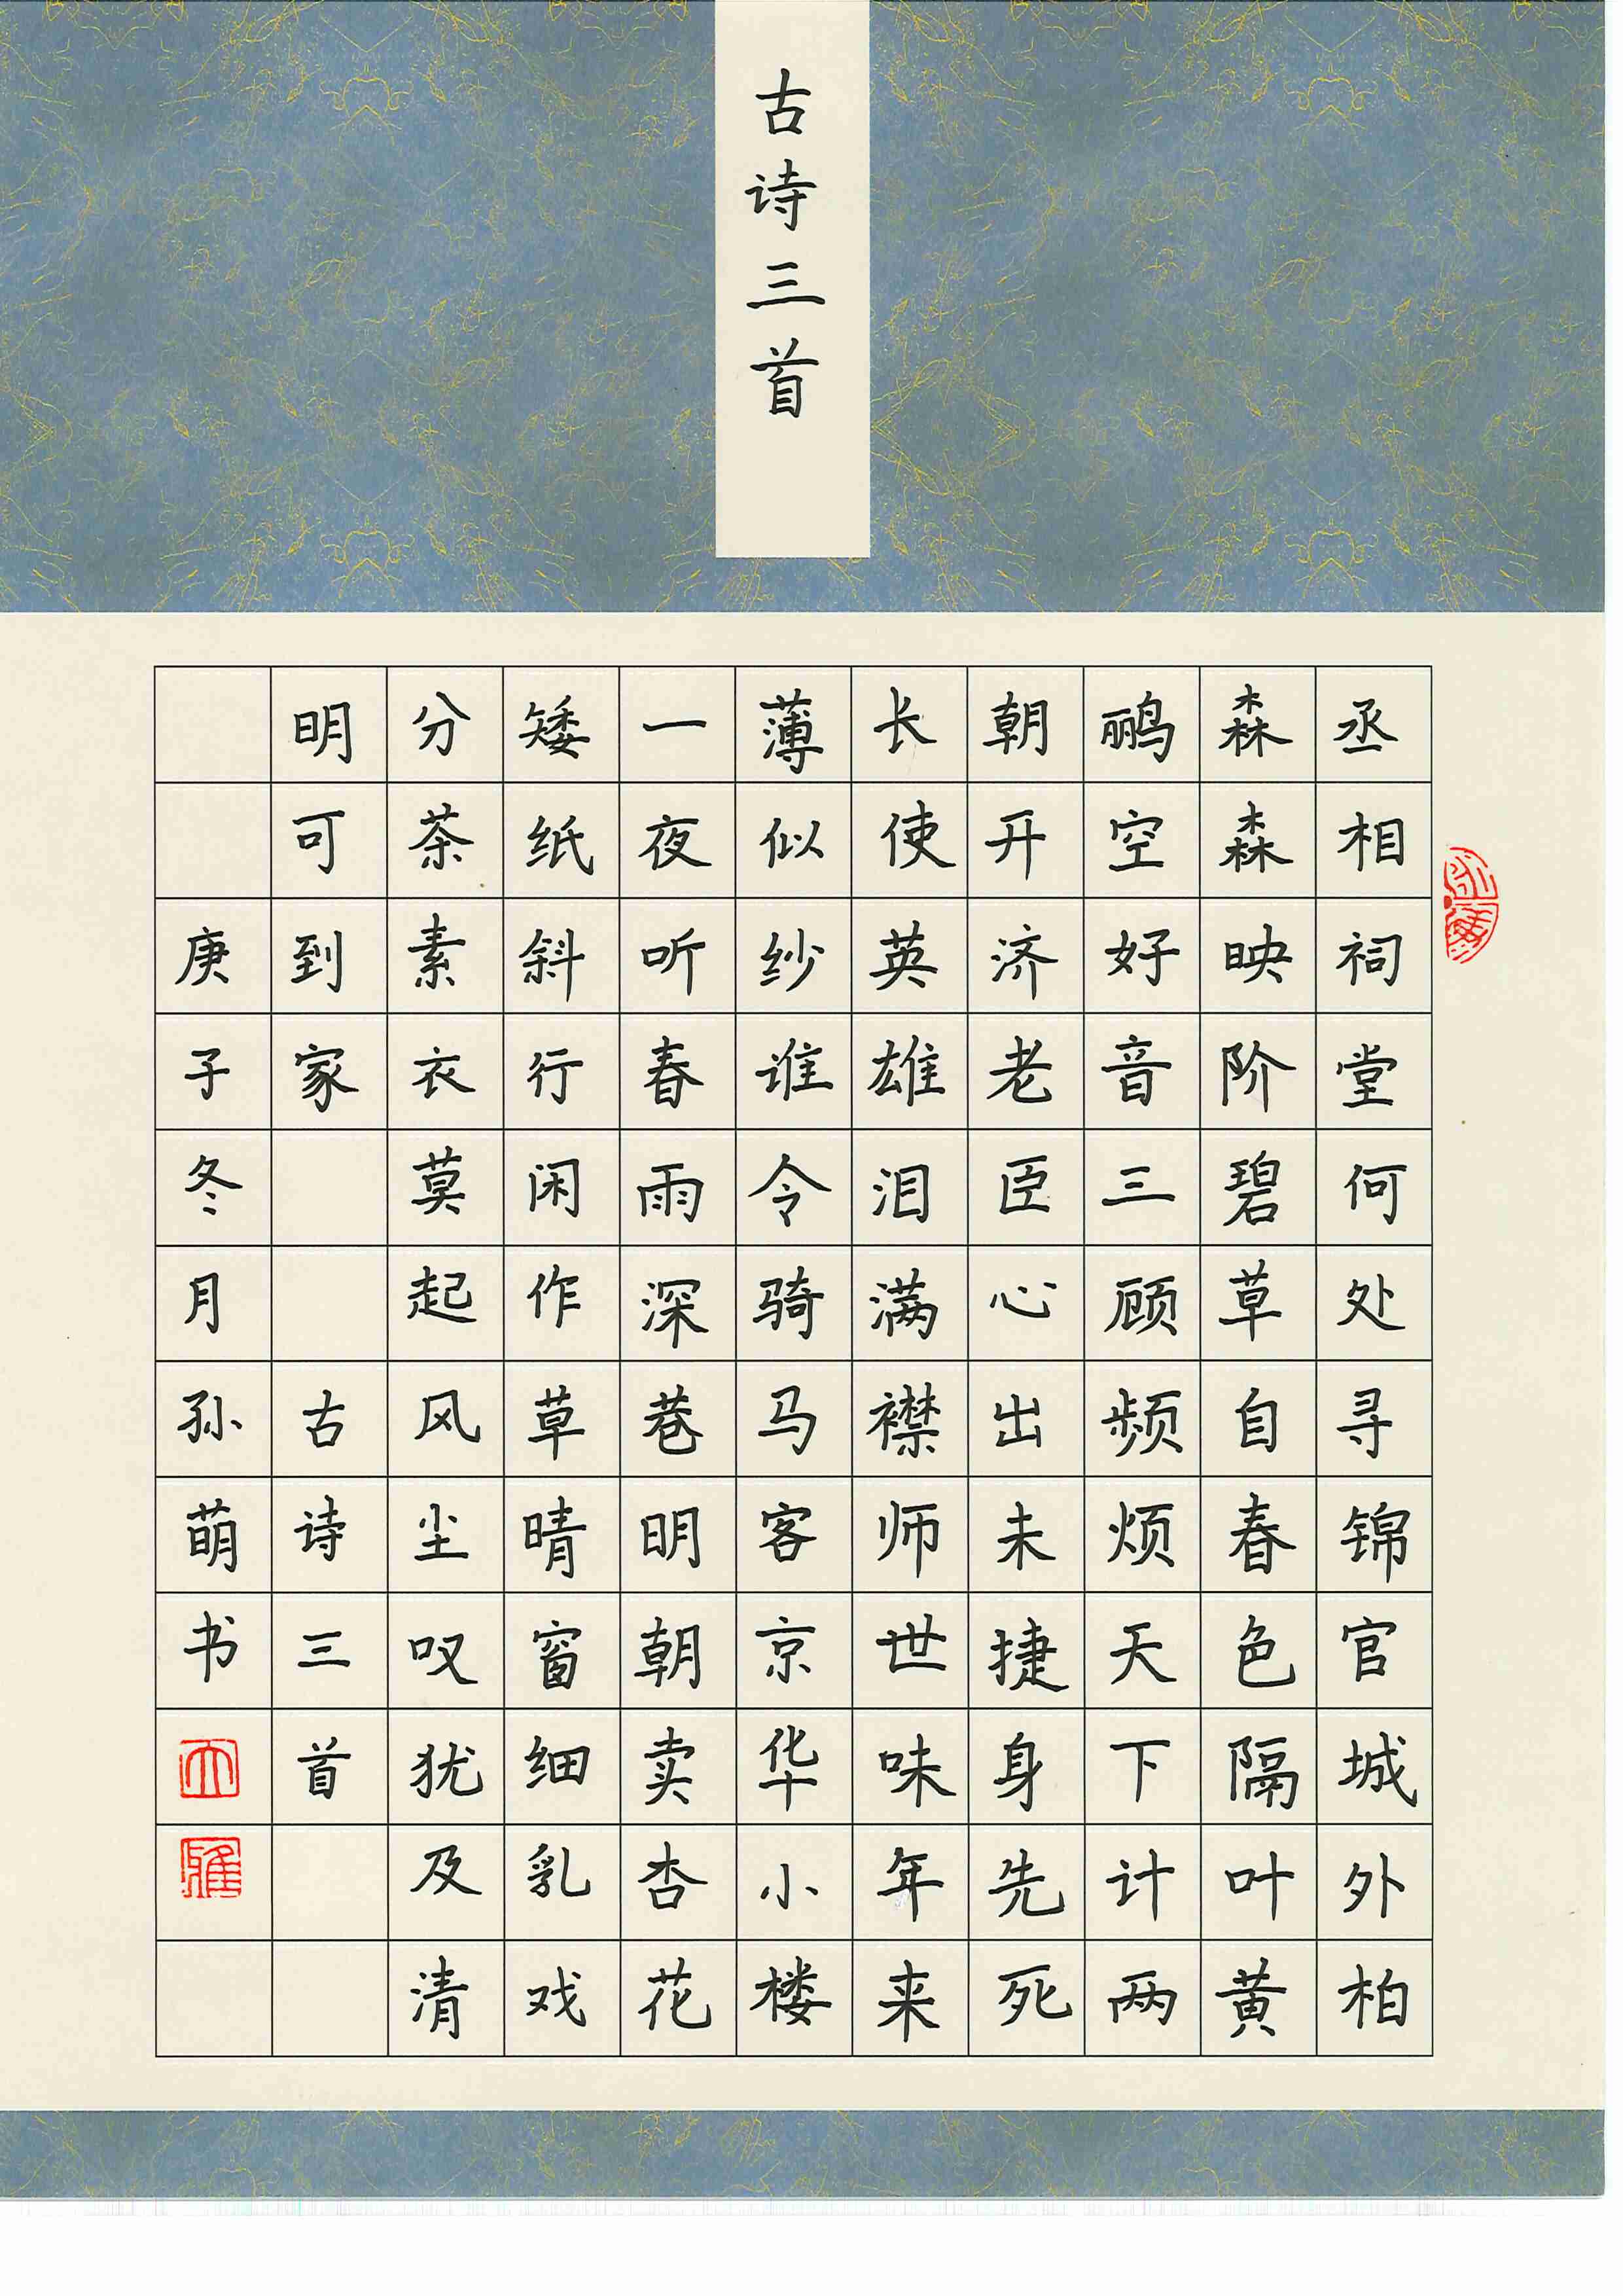 古诗三首
丞相祠堂何处寻锦官城外柏
森森映阶碧草自春色隔叶黄
鹂空好音三顾频烦天下计两
朝开济老臣心出未捷身先死
长使英雄泪满襟师世味年来
薄似纱谁令骑马客京华小楼
一夜听春雨深巷明朝卖杏花
矮纸斜行闲作草晴窗细乳戏
分茶素衣莫起风尘叹犹及清
明可到家 古诗三首
庚子冬月孙萌书